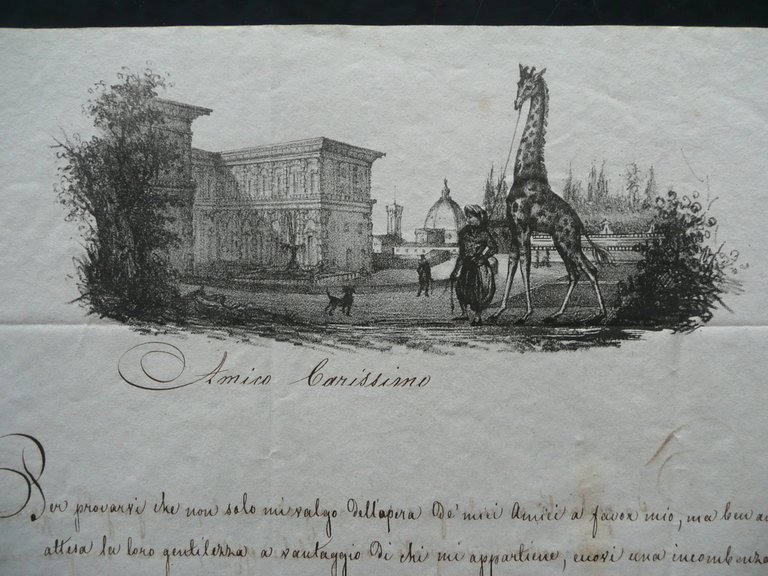 Amico Carissimo
Per provarvi che non solo mi valgo dell'opera de' miei Amici a favor mio, ma ben a
attesa la loro gentilezza a vantaggio di chi mi appartiene, eccovi una incombenza